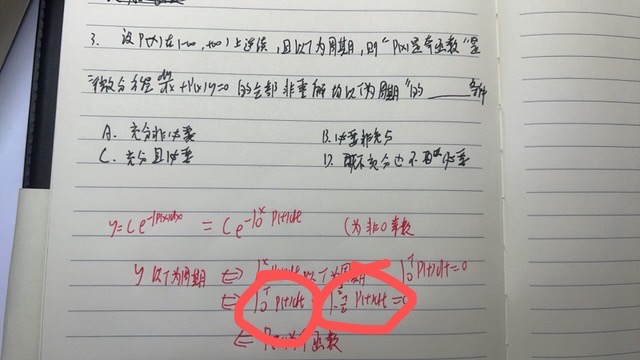 3. 设P(x)在(-∞,+∞)上连续,且以T为周期,则"P(x)是奇函数"是
"微分方程dy/dx+P(x)y=0的全部非零解均以T为周期"的____条件
A. 充分非必要 B. 必要非充分
C. 充分且必要 D. 既不充分也不必要
y=Ce^{-∫P(x)dx} = Ce^{-∫₀ˣP(t)dt} C为非0常数
y以T为周期 ⇔ 以T为周期 ∫₀ᵀP(t)dt=0
⇔ ∫₀ᵀP(t)dt P(t)dt=0
⇐ 函数